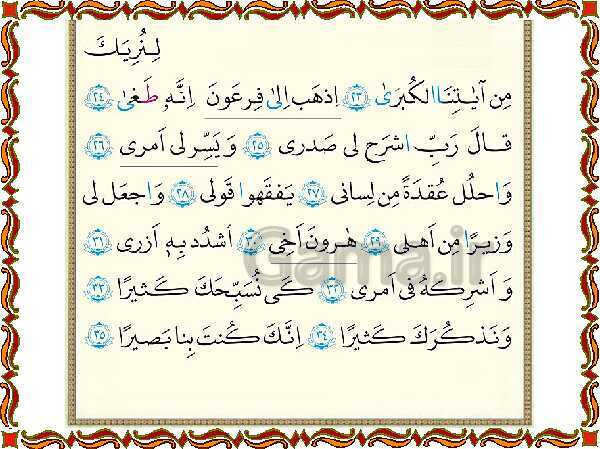 لِنُرِيَكَ
مِن آيٰتِنَا الكُبرَىٰ ﴿٢٣﴾ اِذهَب اِلىٰ فِرعَونَ اِنَّهٗ طَغىٰ ﴿٢٤﴾
قالَ رَبِّ اشرَح لى صَدرى ﴿٢٥﴾ وَ يَسِّر لى اَمرى ﴿٢٦﴾
وَ احلُل عُقدَةً مِن لِسانى ﴿٢٧﴾ يَفقَهوا قَولى ﴿٢٨﴾ وَ اجعَل لى
وَزيرًا مِن اَهلى ﴿٢٩﴾ هٰرونَ اَخِى ﴿٣٠﴾ اُشدُد بِهٖ اَزرى ﴿٣١﴾
وَ اَشرِكهُ فى اَمرى ﴿٣٢﴾ كَى نُسَبِّحَكَ كَثيرًا ﴿٣٣﴾
وَ نَذكُرَكَ كَثيرًا ﴿٣٤﴾ اِنَّكَ كُنتَ بِنا بَصيرًا ﴿٣٥﴾
Gama.ir